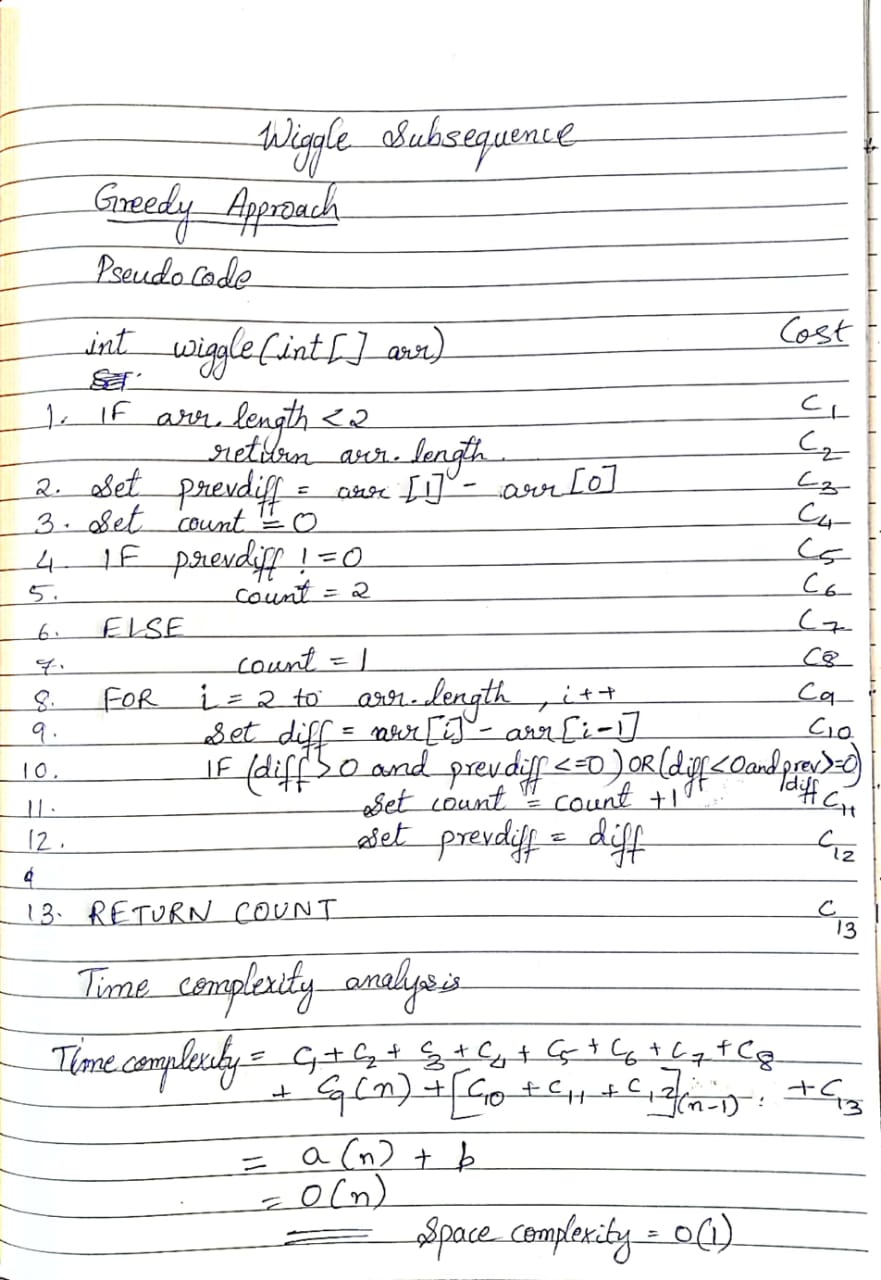 Wiggle Subsequence
Greedy Approach
Pseudo code
int wiggle(int[] arr) Cost
1. IF arr.length <2 C1
return arr.length. C2
2. Set prevdiff = arr [1] - arr [0] C3
3. Set count = 0 C4
4. IF prevdiff != 0 C5
5. count = 2 C6
6. ELSE C7
7. count = 1 C8
8. FOR i = 2 to arr.length, i++ C9
9. Set diff = arr[i] - arr[i-1] C10
10. IF (diff>0 and prevdiff <=0) OR (diff<0 and prev>=0)
diff
11. Set count = count +1 C11
12. Set prevdiff = diff C12
13. RETURN COUNT C13
Time complexity analysis
Time complexity = C1 + C2 + C3 + C4 + C5 + C6 + C7 + C8
+ C9(n) + [C10 + C11 + C12](n-1) + C13
= a(n) + b
= O(n)
Space complexity = O(1)